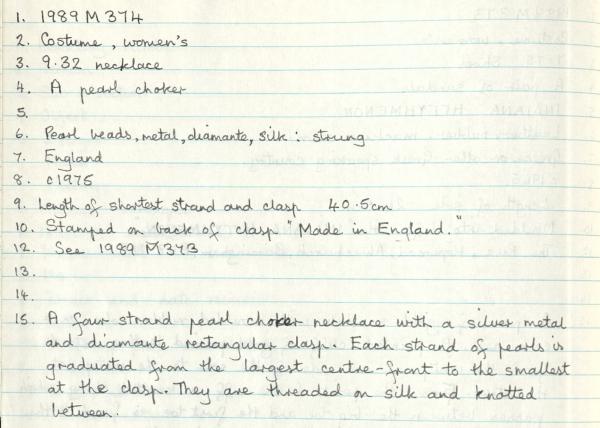 1. 1989 M 374
2. Costume, women's
3. 9.32 necklace
4. A pearl choker
5.
6. Pearl beads, metal, diamante, silk: strung
7. England
8. c1975
9. Length of shortest strand and clasp 40.5cm
10. Stamped on back of clasp "Made in England."
12. See 1989 M 373
13.
14.
15. A four strand pearl choker necklace with a silver metal
and diamante rectangular clasp. Each strand of pearls is
graduated from the largest centre-front to the smallest
at the clasp. They are threaded on silk and knotted
between.